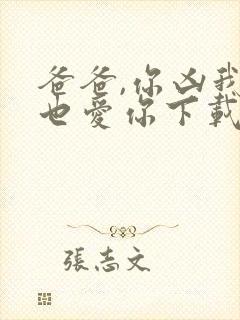 爸爸,你凶我
也愛你下載
張志文